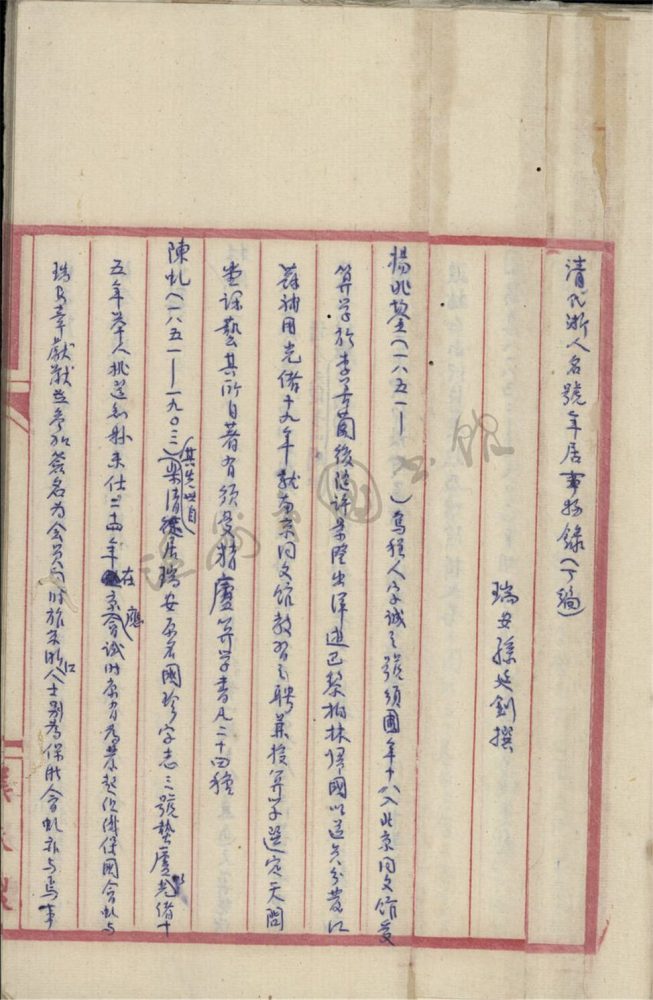 清代浙人名號年居事物錄(丁稿)
瑞安孫延釗撰
楊兆鋆(一八五一——　　)烏程人字誠之號須圃年十八入北京同文館受
算學於李善蘭後隨許景澄出洋遊巴黎柏林歸國以道員分發江
蘇補用光緒十九年就南京同文館教習之聘兼授算學選定天開
堂課藝其所自著有須曼精廬算學書凡二十四種
陳虬(一八五一——一九〇三)其先世自樂清徙居瑞安原名國珍字志三號蟄廬光緒十
五年舉人挑選知縣未仕二十四年在京應會試時康有為等起組織保國會虬與
瑞安章獻猷並參加簽名為會員同時旅京浙口人士別為保浙會虬亦與焉事
溫州圖書館